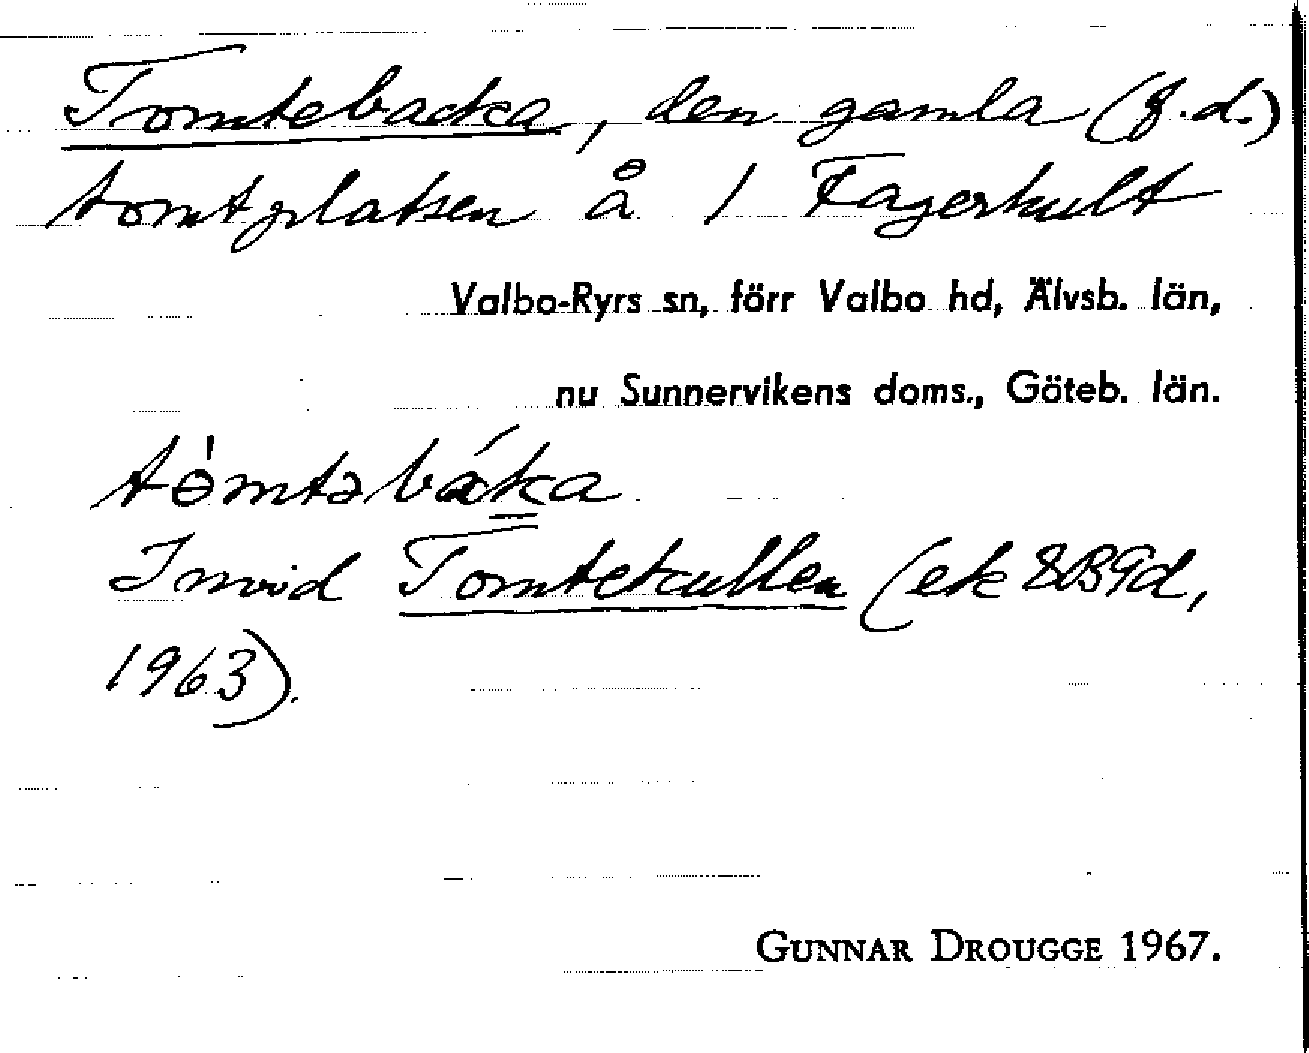 Tomtebacka, den gamla (f.d.)
tomtplatsen å 1 Fagerhult
Valbo-Ryrs sn, förr Valbo hd, Älvsb. län,
nu Sunnervikens doms., Göteb. län.
tòmtəbáka
Invid Tomtekullen (ek 8B9d,
1963).
GUNNAR DROUGGE 1967.